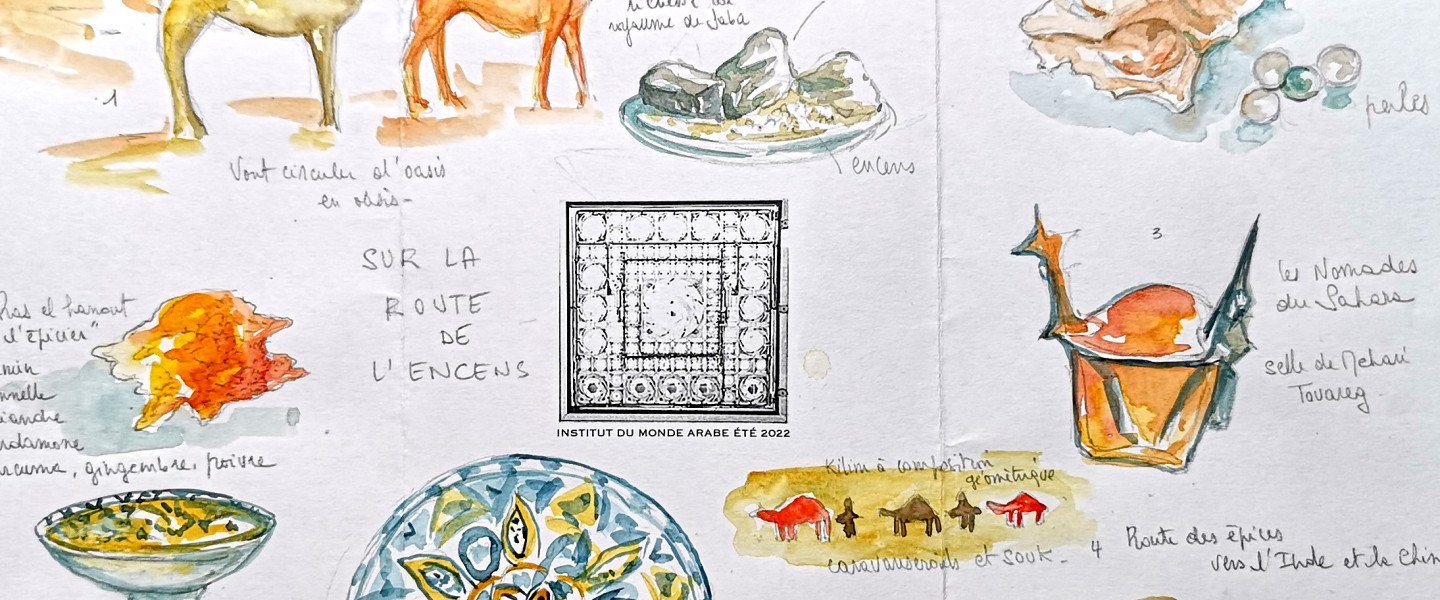 royaume de Saba
1
perles
l'encens
Vont circuler d'oasis
en oasis-
SUR LA
ROUTE
DE
L'ENCENS
INSTITUT DU MONDE ARABE ÉTÉ 2022
3
les Nomades
du Sahara
selle de Mehari
Touareg
Ras el hanout
d'épicier"
min
nnelle
iandre
rdamome
rcuma, gingembre, poivre
Kilim à composition
géométrique
caravansérails et souk-
4
Route des épices
vers l'Inde et la Chin